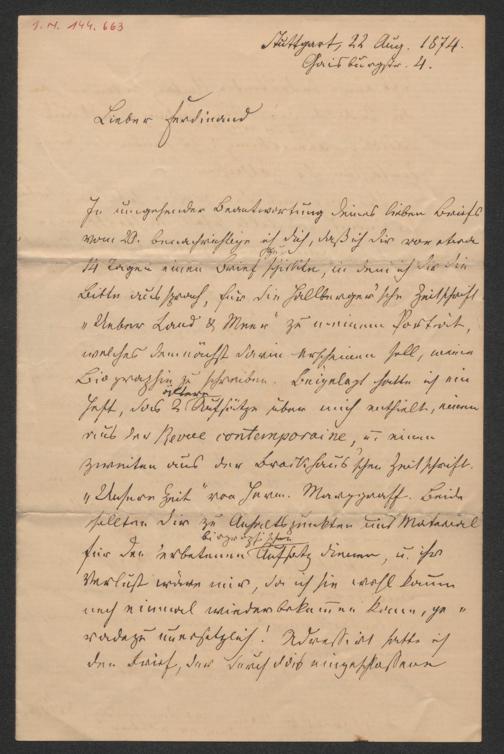 J. N. 144.663
Stuttgart, 22 Aug. 1874.
Gaisburgstr. 4.
Lieber Ferdinand
In umgehender Beantwortung deines lieben Briefs
vom 20. benachrichtige ich dich, daß ich dir vor etwa
14 Tagen einen Brief schickte, in dem ich dir die
Bitte aussprach, für die Hallberger'sche Zeitschrift
"Ueber Land & Meer" zu meinem Porträt,
welches demnächst darin erscheinen soll, meine
Biographie zu schreiben. Beigelegt hatte ich ein
Heft, das 2 ältere Aufsätze über mich enthielt, einen
aus der Revue contemporaine, u. einen
zweiten aus der Brockhaus'schen Zeitschrift
"Unsere Zeit" von Herm. Marggraff. Beide
sollten dir zu Anhaltspunkten und Material
für den erbetenen biographischen Aufsatz dienen, u. ihr
Verlust wäre mir, da ich sie wohl kaum
noch einmal wiederbekommen kann, ge-
radezu unersetzlich! Adressirt hatte ich
den Brief, der durch das eingeschlossene